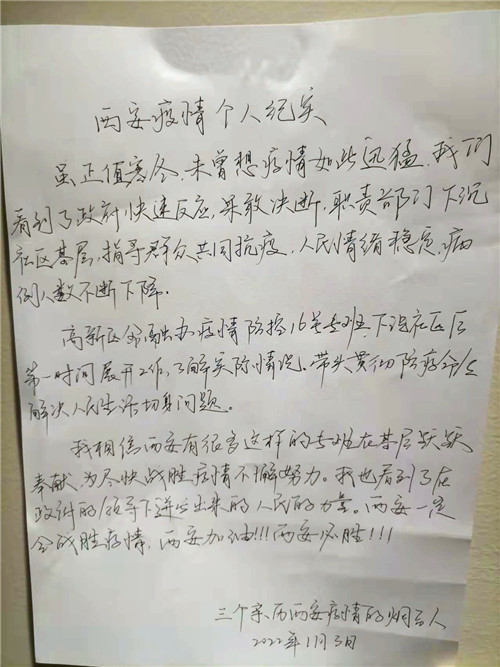 西安疫情个人纪实
虽正值寒冬,未曾想疫情如此迅猛,我们
看到了政府快速反应,果敢决断,职责部门下沉
社区基层,指导群众共同抗疫,人民情绪稳定,病
例人数不断下降。
高新区 疫情防控16 专班下沉社区后
第一时间展开工作,了解实际情况。带头贯彻防疫
解决人民生活切身问题。
我相信西安有很多这样的专班在基层默默
奉献,为尽快战胜疫情不懈努力。我也看到了在
政府的领导下迸发出来的人民的力量。西安一定
会战胜疫情,西安加油!!!西安必胜!!!
三个亲历西安疫情的烟台人
2022年1月3日